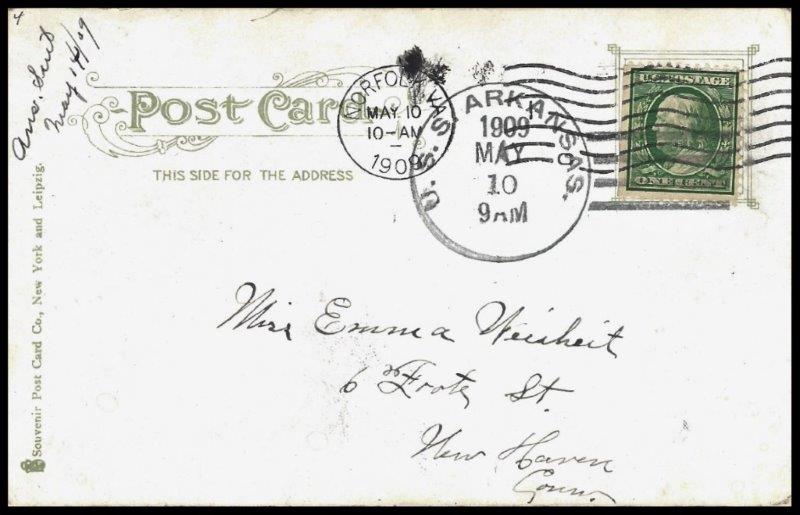 4
Ans. Sent
May 14/09
Post Card
THIS SIDE FOR THE ADDRESS
NORFOLK, VA.
MAY 10
10-AM
1909
U.S.S. ARKANSAS.
1909
MAY
10
9AM
U.S. POSTAGE
ONE CENT
Miss Emma Weisheit
6 Foote St.
New Haven
Conn.
Souvenir Post Card Co., New York and Leipzig.